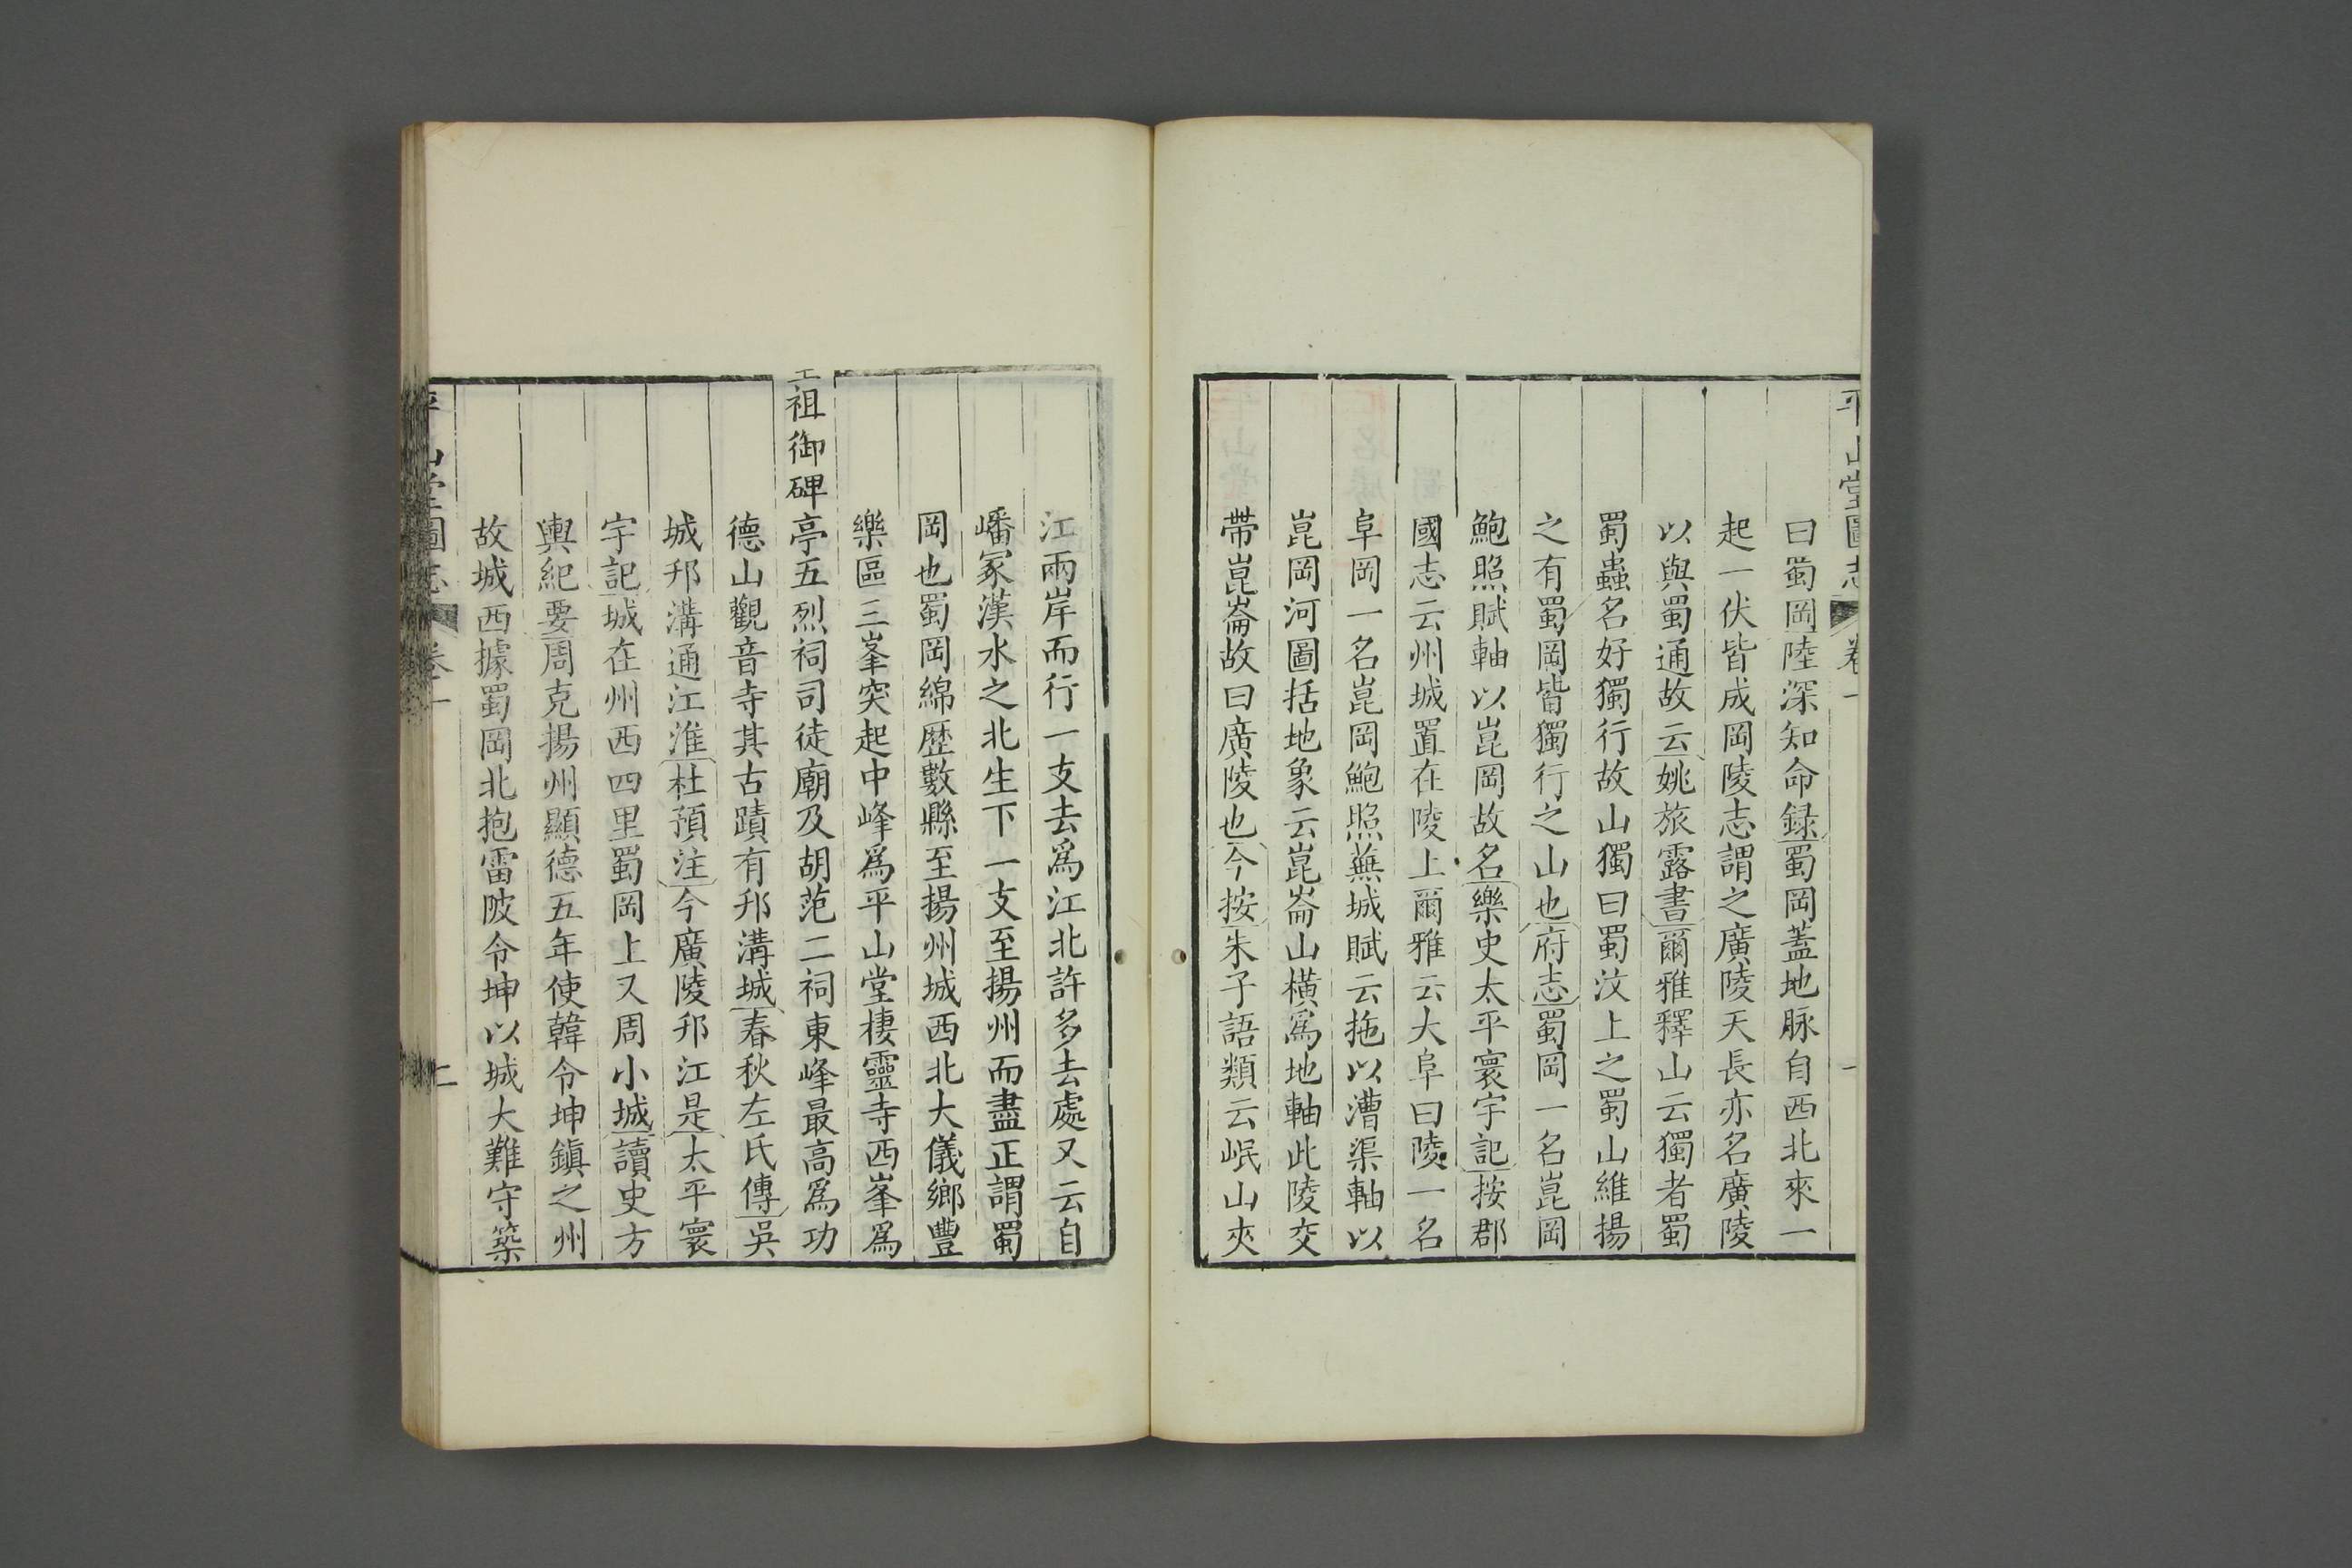 平山堂圖志 卷一 一
曰蜀岡陸深知命録蜀岡蓋地脉自西北來一
起一伏皆成岡陵志謂之廣陵天長亦名廣陵
以與蜀通故云姚旅露書爾雅釋山云獨者蜀
蜀蟲名好獨行故山獨曰蜀汶上之蜀山維揚
之有蜀岡皆獨行之山也府志蜀岡一名崑岡
鮑照賦軸以崑岡故名樂史太平寰宇記按郡
國志云州城置在陵上爾雅云大阜曰陵一名
阜岡一名崑岡鮑照蕪城賦云拖以漕渠軸以
崑岡河圖括地象云崑崙山橫爲地軸此陵交
帶崑崙故曰廣陵也今按朱子語類云岷山夾
江兩岸而行一支去爲江北許多去處又云自
嶓冢漢水之北生下一支至揚州而盡正謂蜀
岡也蜀岡綿歷數縣至揚州城西北大儀鄉豐
樂區三峯突起中峰爲平山堂棲靈寺西峯爲
祖御碑亭五烈祠司徒廟及胡范二祠東峰最高爲功
德山觀音寺其古蹟有邗溝城春秋左氏傳吳
城邗溝通江淮杜預注今廣陵邗江是太平寰
宇記城在州西四里蜀岡上又周小城讀史方
輿紀要周克揚州顯德五年使韓令坤鎮之州
故城西據蜀岡北抱雷陂令坤以城大難守築
平山堂圖志 卷一